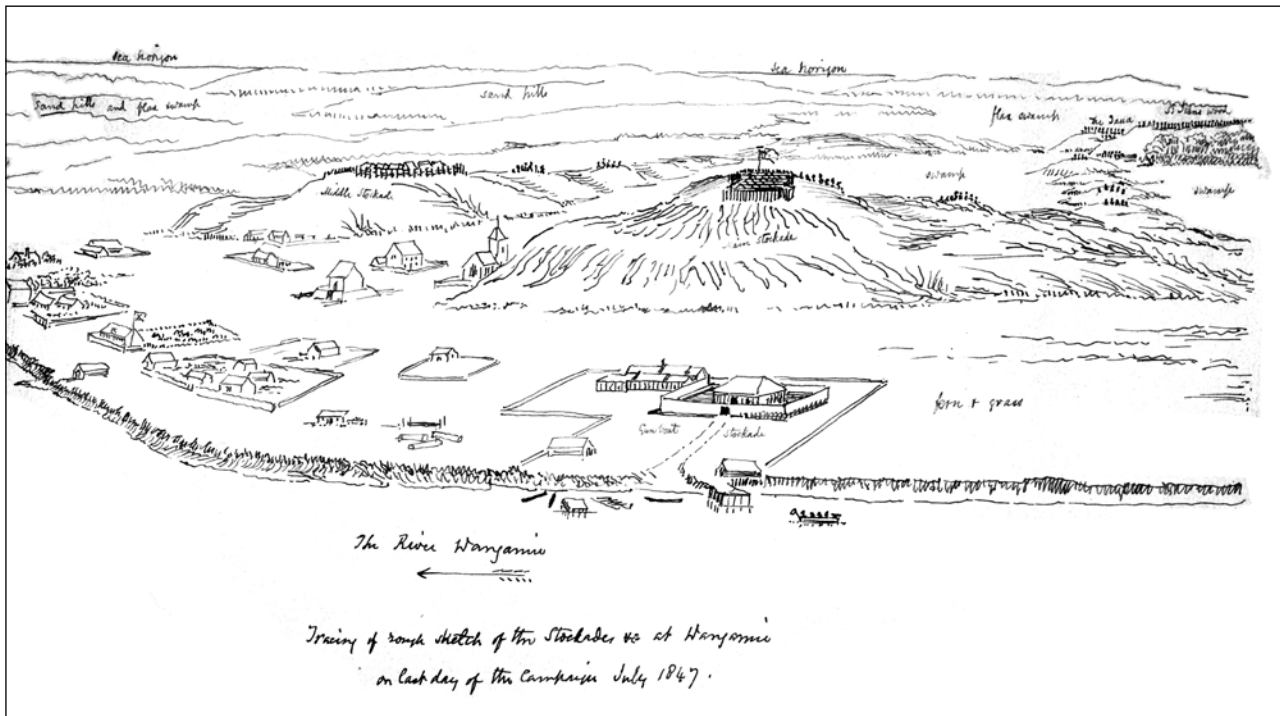 Sea horizon
Sea horizon
Sand hills and flax swamp
sand hills
flax swamp
The Taua
St Johns wood
swamp
swamp
Middle Stockade
Main Stockade
fern & grass
Gun boat Stockade
The River Wanganui
Tracing of rough sketch of the Stockades &c at Wanganui
on last day of the Campaign July 1847.